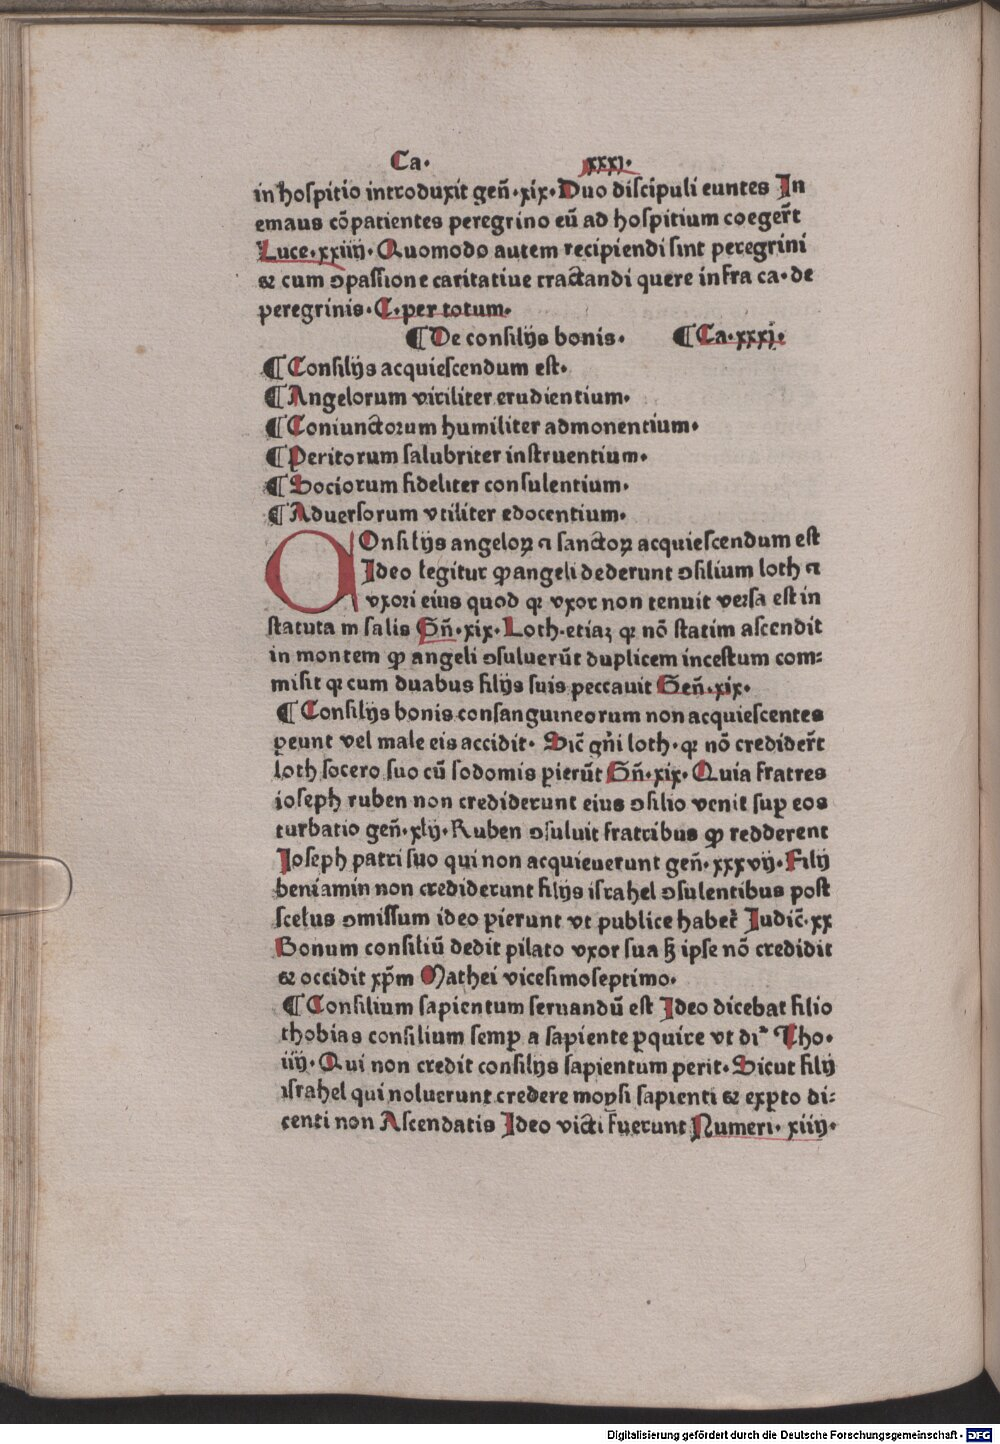 Ca. xxxj.
in hospitio introduxit geñ.xix.Duo discipuli euntes In
emaus cõpatientes peregrino eũ ad hospitium coegerт̃
Luce.xxiiij.Quomodo autem recipiendi sint peregrini
& cum ꝯpassione caritatiue tractandi quere infra ca.de
peregrinis.C.per totum.
¶De consilijs bonis. ¶Ca.xxxj.
¶Consilijs acquiescendum est.
¶Angelorum viriliter erudientium.
¶Coniunctorum humiliter admonentium.
¶Peritorum salubriter instruentium.
¶Sociorum fideliter consulentium.
¶Aduersorum vtiliter edocentium.
COnsilijs angeloꝝ ⁊ sanctoꝝ acquiescendum est
Ideo legitur ꝙ angeli dederunt ꝯsilium loth ⁊
vxori eius quod qꝛ vxor non tenuit versa est in
statuta m salis Gñ.xix.Loth.etiaꝫ qꝛ nõ statim ascendit
in montem ꝙ angeli ꝯsuluerũt duplicem incestum com:
misit qꝛ cum duabus filijs suis peccauit Geñ.xix.
¶Consilijs bonis consanguineorum non acquiescentes
ꝑeunt vel male eis accidit. Sic̃ gñi loth.qꝛ nõ credider̃t
loth socero suo cũ sodomis ꝑierũt Gñ.xix.Quia fratres
ioseph ruben non crediderunt eius ꝯsilio venit suꝑ eos
turbatio geñ.xlij.Ruben ꝯsuluit fratribus ꝙ redderent
Joseph patri suo qui non acquieuerunt geñ.xxxvij.Filij
beniamin non crediderunt filijs israhel ꝯsulentibus post
scelus ꝯmissum ideo ꝑierunt vt publice haber̃ Judic̃.xx
Bonum consiliũ dedit pilato vxor sua ß ipse nõ credidit
& occidit xp̃m Mathei vicesimoseptimo.
¶Consilium sapientum seruandũ est Ideo dicebat filio
thobias consilium semꝑ a sapiente ꝑquire vt di᷒ Tho.
iiij.Qui non credit consilijs sapientum perit.Sicut filij
israhel qui noluerunt credere moysi sapienti & exꝑto di:
centi non Ascendatis Ideo victi fuerunt Numeri.xiiij.
Digitalisierung gefördert durch die Deutsche Forschungsgemeinschaft - DFG